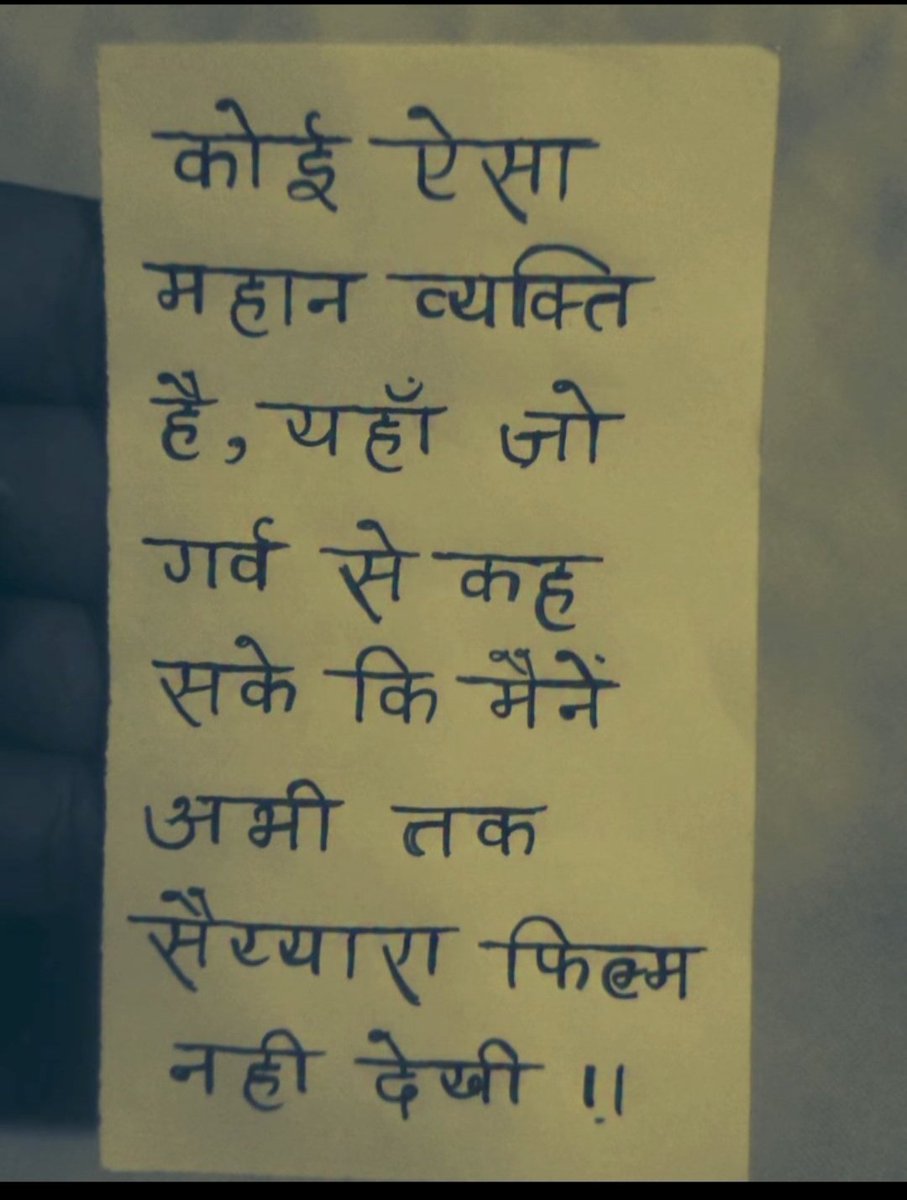 कोई ऐसा
महान व्यक्ति
है, यहाँ जो
गर्व से कह
सके कि मैनें
अभी तक
सैय्यारा फिल्म
नही देखी !!